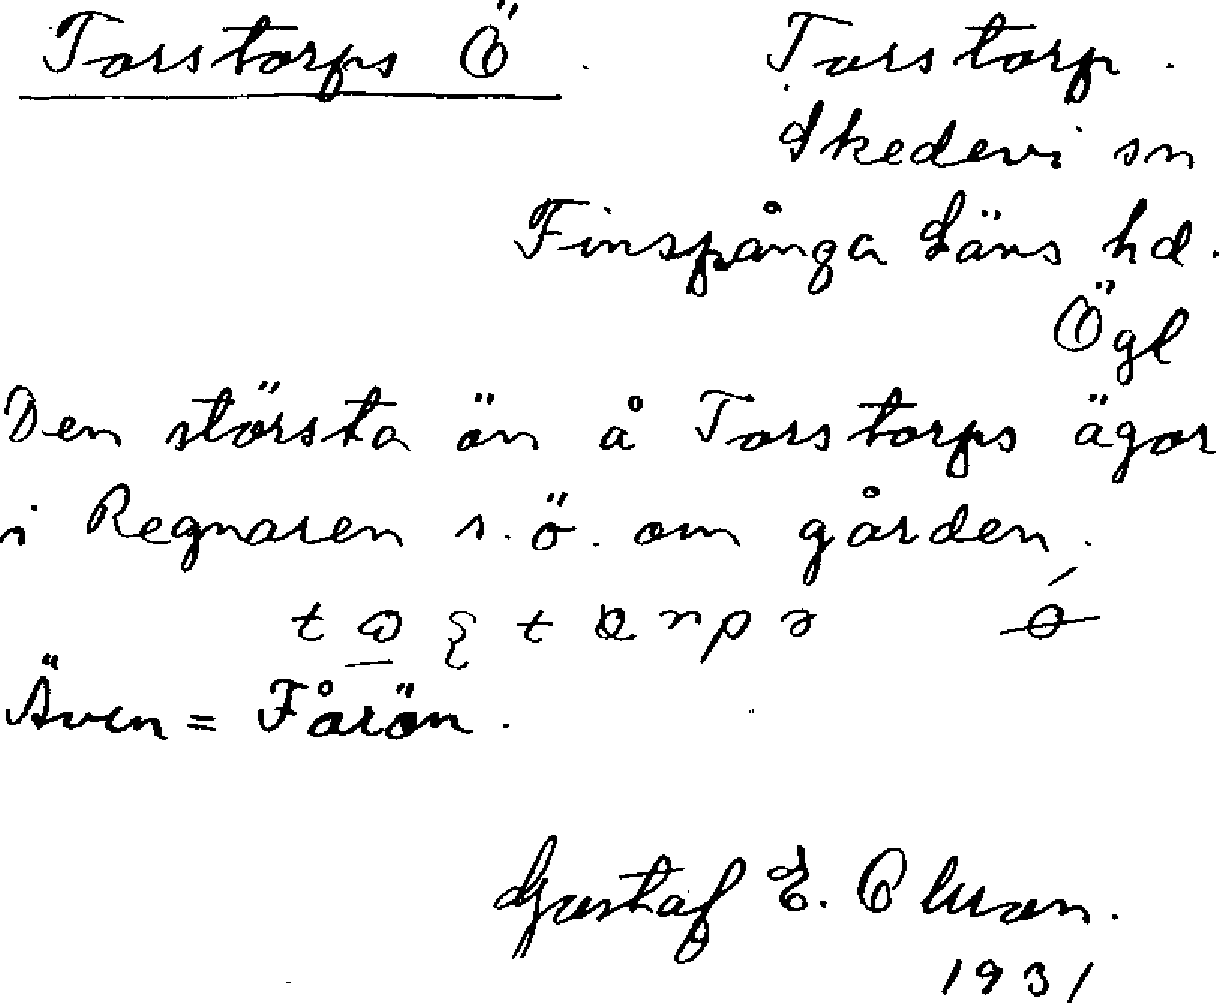 Torstorps Ö. Torstorp.
Skedevi sn
Finspånga Läns hd.
Ögl
Den största ön å Torstorps ägor
i Regnaren s.ö. om gården.
Även = Fårön.
Gustaf E.
1931